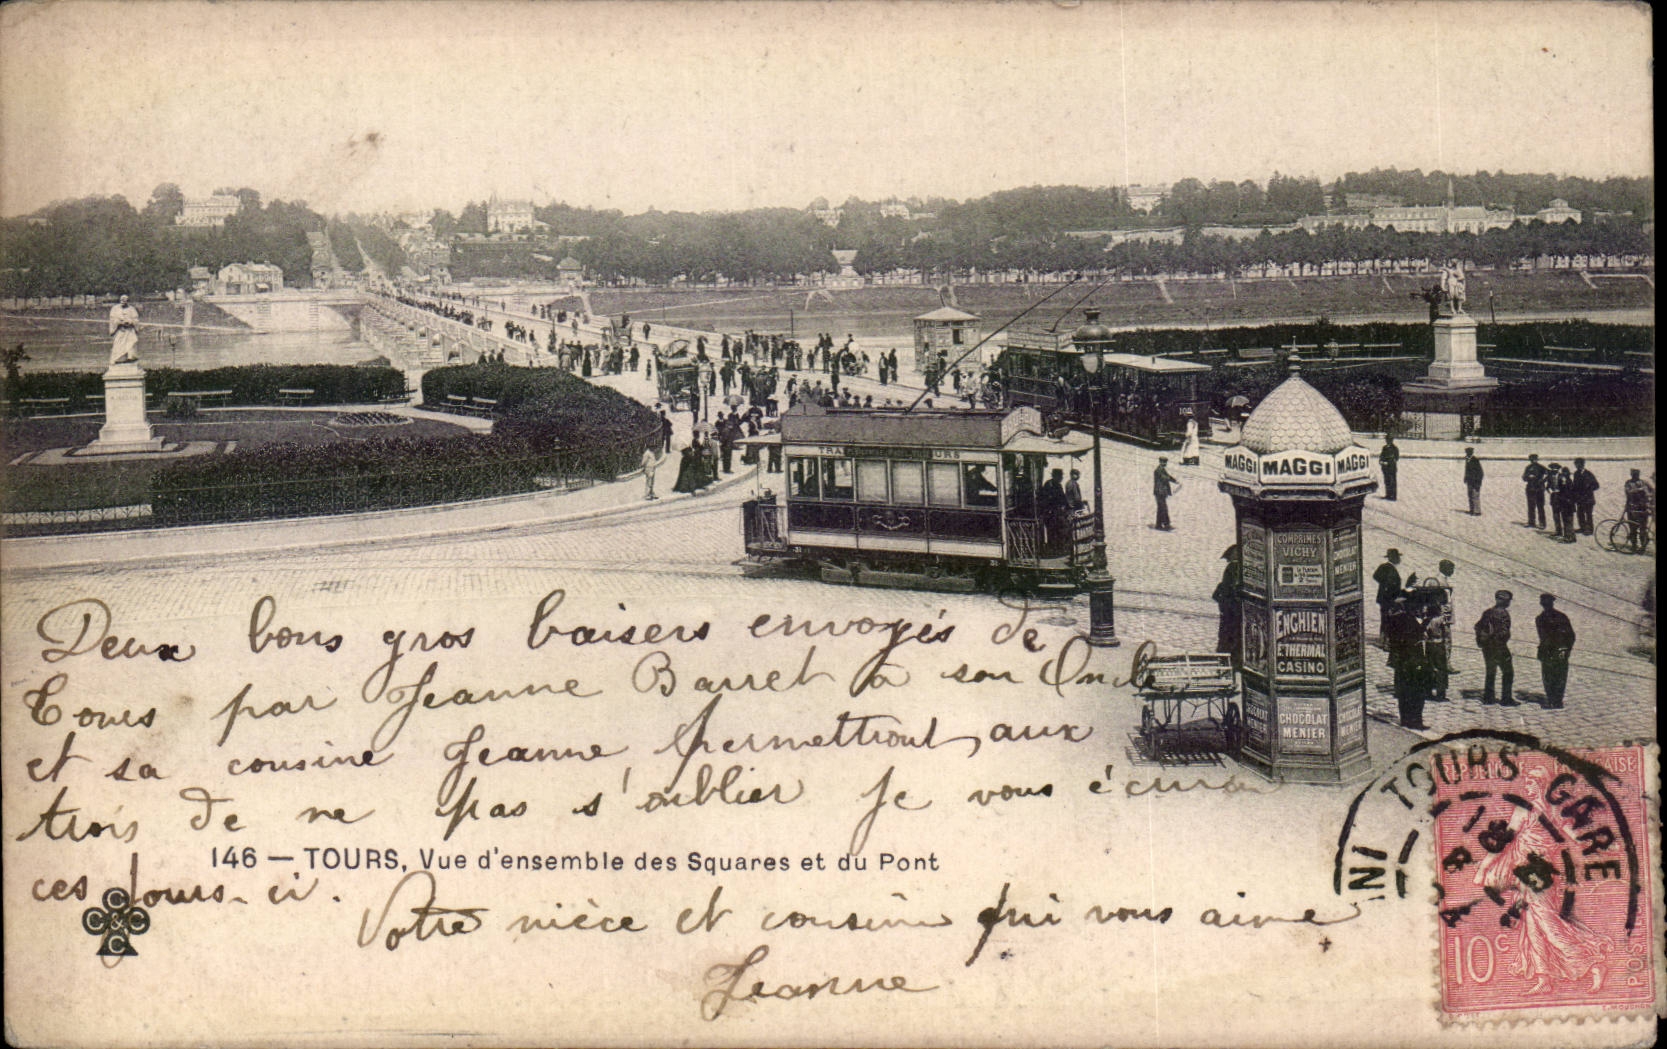 TRAMWAYS DE TOURS
31
31
102
MAGGI MAGGI MAGGI
COMPRIMÉS
VICHY
CHOCOLAT
MENIER
ENGHIEN
ET THERMAL
CASINO
CHOCOLAT
MENIER
CHOCOLAT
MENIER
CHOCOLAT
MENIER
Deux bons gros baisers envoyés de
Tours par Jeanne Barret à son Oncle
et sa cousine Jeanne, permettront aux
trois de ne pas s'oublier je vous écrirai
ces jours-ci.
146 — TOURS, Vue d'ensemble des Squares et du Pont
Votre nièce et cousine qui vous aime
Jeanne
C C C C
TOURS GARE
RÉPUBLIQUE FRANÇAISE
10c
POSTES
E. MOUCHON